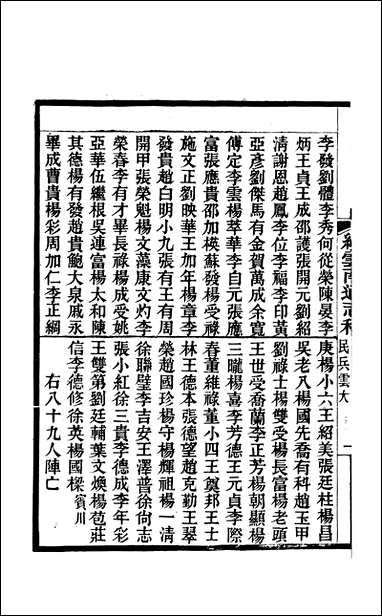 李發劉體李秀何從榮陳晏李
炳王貞王成邵護張開元劉紹
清謝恩趙鳳李位李福李印黃
亞彥劉傑馬有金賀萬成余寬
傅定李雲楊萃華李自元張應
富張應貴邵加模蘇發楊受祿
施文正劉映華王加年楊章李
發貴趙白明小九張有王有周
開甲張榮魁楊文藻康文灼李
榮春李有才畢長祿楊成受姚
亞華伍繼根吳連富楊太和陳
其德楊有發趙貴鮑大泉戚永
畢成曹貴楊彩周加仁李正綱
續雲南通志稿
民兵雲大
庚楊小六王紹美張廷柱楊昌
吳老八楊國先喬有科趙玉甲
劉祿士楊雙受楊長富楊老頭
王世受喬蘭李正芳楊朝顯楊
三隴楊喜李芳德王元貞李際
春董維祿董小四王奠邦王士
林王德本張德望趙克勤王翠
榮趙國珍楊守楊輝祖楊一清
徐聯璧李吉安王澤普徐尚志
張小紅徐三貴李德成李年彩
王雙第劉廷輔葉文煥楊苞莊
信李德修徐英楊國樑賓川
右八十九人陣亡